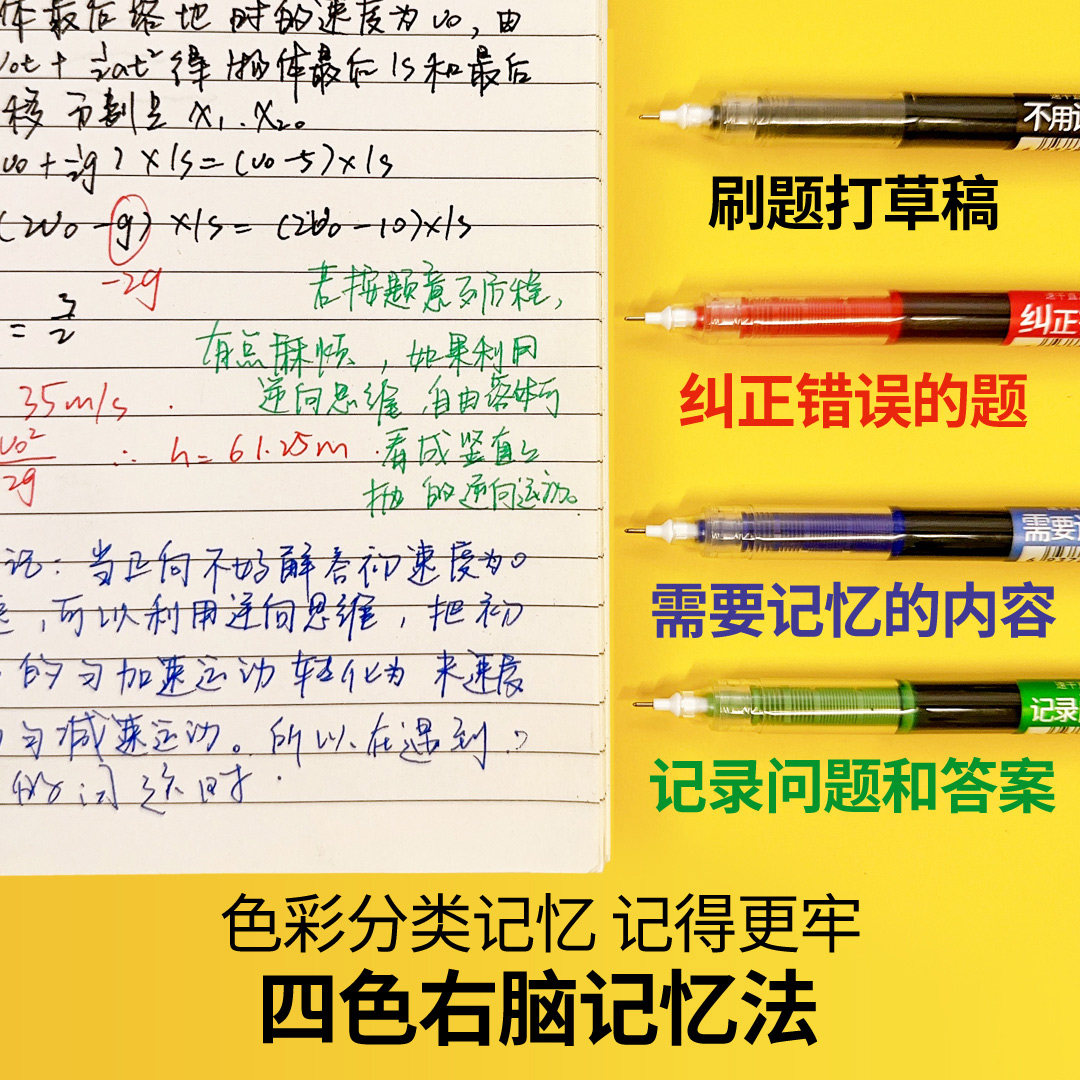 体最后落地时的速度为v₀,由
v₀t+½at²得物体最后1s和最后
移分别是x₁、x₂。
v₀+½g)×1s=(v₀-5)×1s
(2v₀-g)×1s=(2v₀-10)×1s
-2g
=3/2
若按题意列方程,
有点麻烦,如果利用
逆向思维,自由落体可
看成竖直上
抛的逆向运动。
35m/s.
v₀²/2g ∴h=61.25m.
记:当正向不好解答初速度为0
,可以利用逆向思维,把初
的匀加速运动转化为末速度
匀减速运动。所以在遇到
问题时.
不用
刷题打草稿
纠正
纠正错误的题
需要
需要记忆的内容
记录
记录问题和答案
色彩分类记忆 记得更牢
四色右脑记忆法